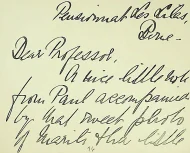 Pensionnat Les Lilas,
Berne -
Dear Professor,
A nice little note
from Paul accompanied
by that sweet photo
of Marili & her little